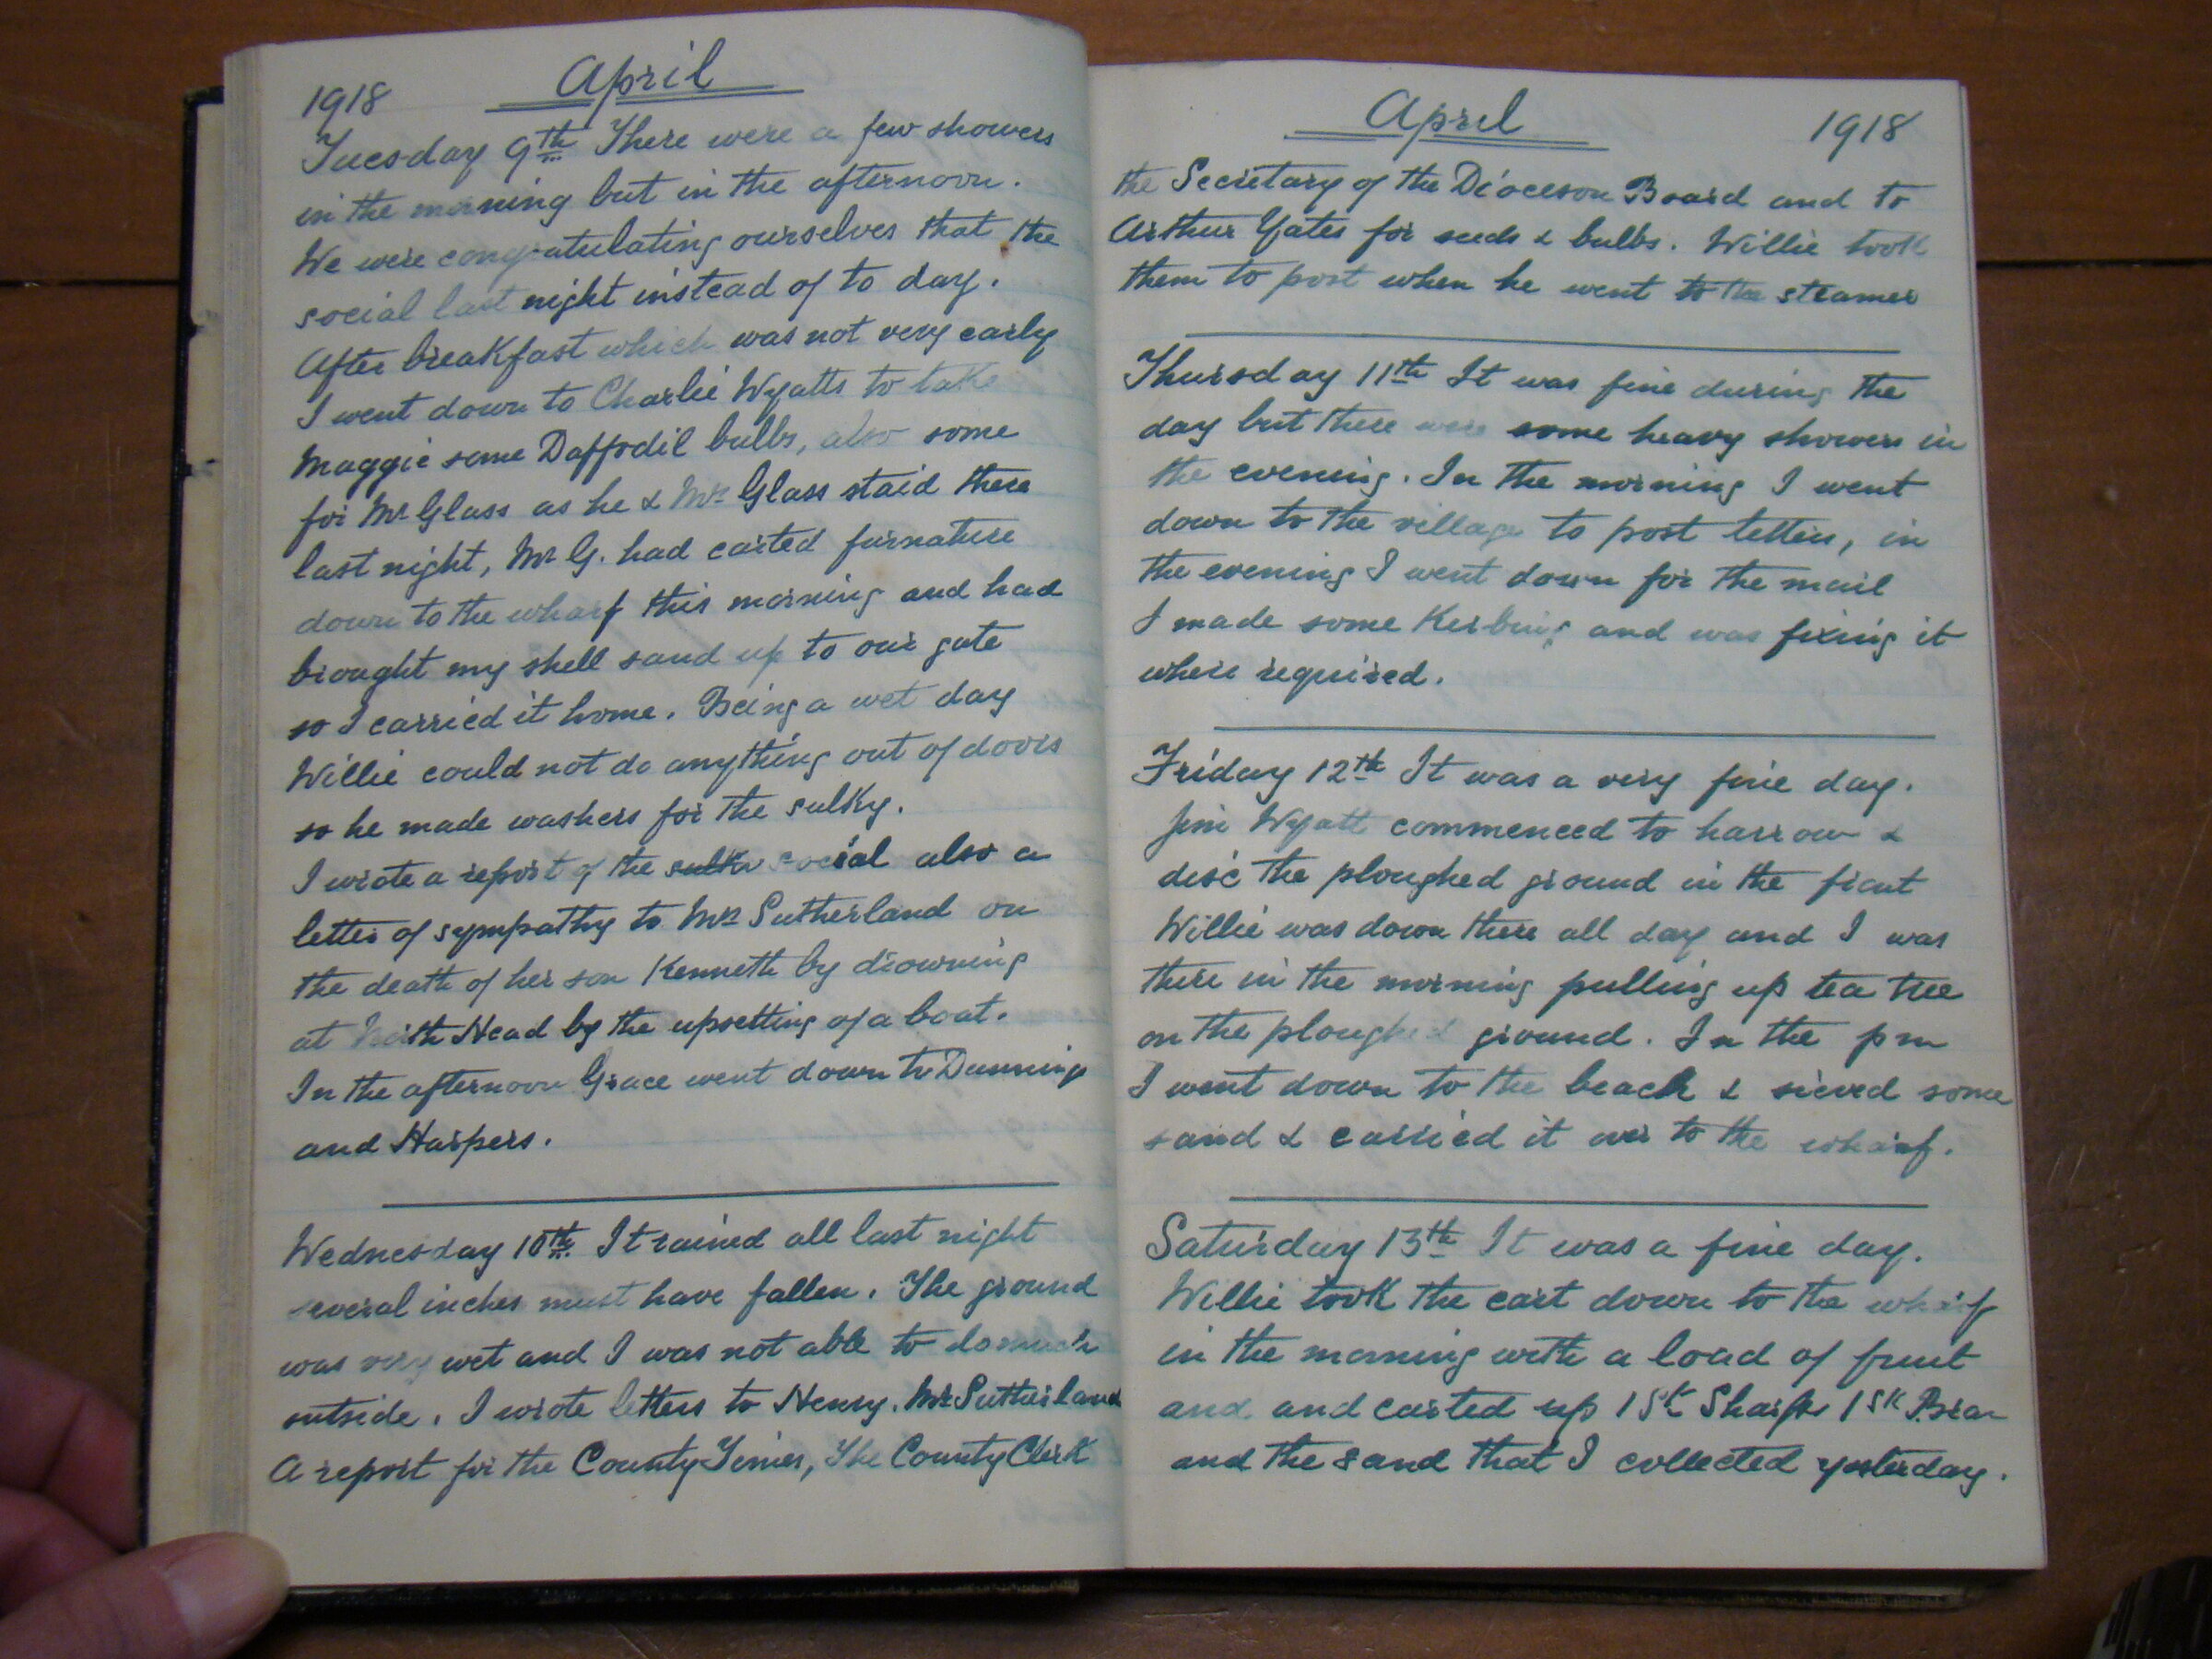 1918
April
Tuesday 9th There were a few showers
in the morning but in the afternoon.
We were congratulating ourselves that the
social last night instead of to day.
After breakfast which was not very early
I went down to Charlie Wyatts to take
Maggie some Daffodil bulbs, also some
for Mr Glass as he & Mrs Glass staid there
last night, Mr G. had carted furnature
down to the wharf this morning and had
brought my shell sand up to our gate
so I carried it home. Being a wet day
Willie could not do anything out of doors
so he made washers for the sulky.
I wrote a report of the sulky social also a
letter of sympathy to Mrs Sutherland on
the death of her son Kenneth by drowning
at North Head by the upsetting of a boat.
In the afternoon Grace went down to Dunnings
and Harpers.
Wednesday 10th It rained all last night
several inches must have fallen. The ground
was very wet and I was not able to do much
outside. I wrote letters to Henry, Mrs Sutherland
A report for the County Times, The County Clerk
April
1918
the Secretary of the Dioceson Board and to
Arthur Yates for seeds & bulbs. Willie took
them to post when he went to the steamer
Thursday 11th It was fine during the
day but there were some heavy showers in
the evening. In the morning I went
down to the village to post letters, in
the evening I went down for the mail
I made some Kerbing and was fixing it
where required.
Friday 12th It was a very fine day.
Jim Wyatt commenced to harrow &
disc the ploughed ground in the front
Willie was down there all day and I was
there in the morning pulling up tea tree
on the ploughed ground. In the pm
I went down to the beach & sieved some
sand & carried it over to the wharf.
Saturday 13th It was a fine day.
Willie took the cart down to the wharf
in the morning with a load of fruit
and and carted up 1 Sk Sharps 1 Sk Bran
and the sand that I collected yesterday.